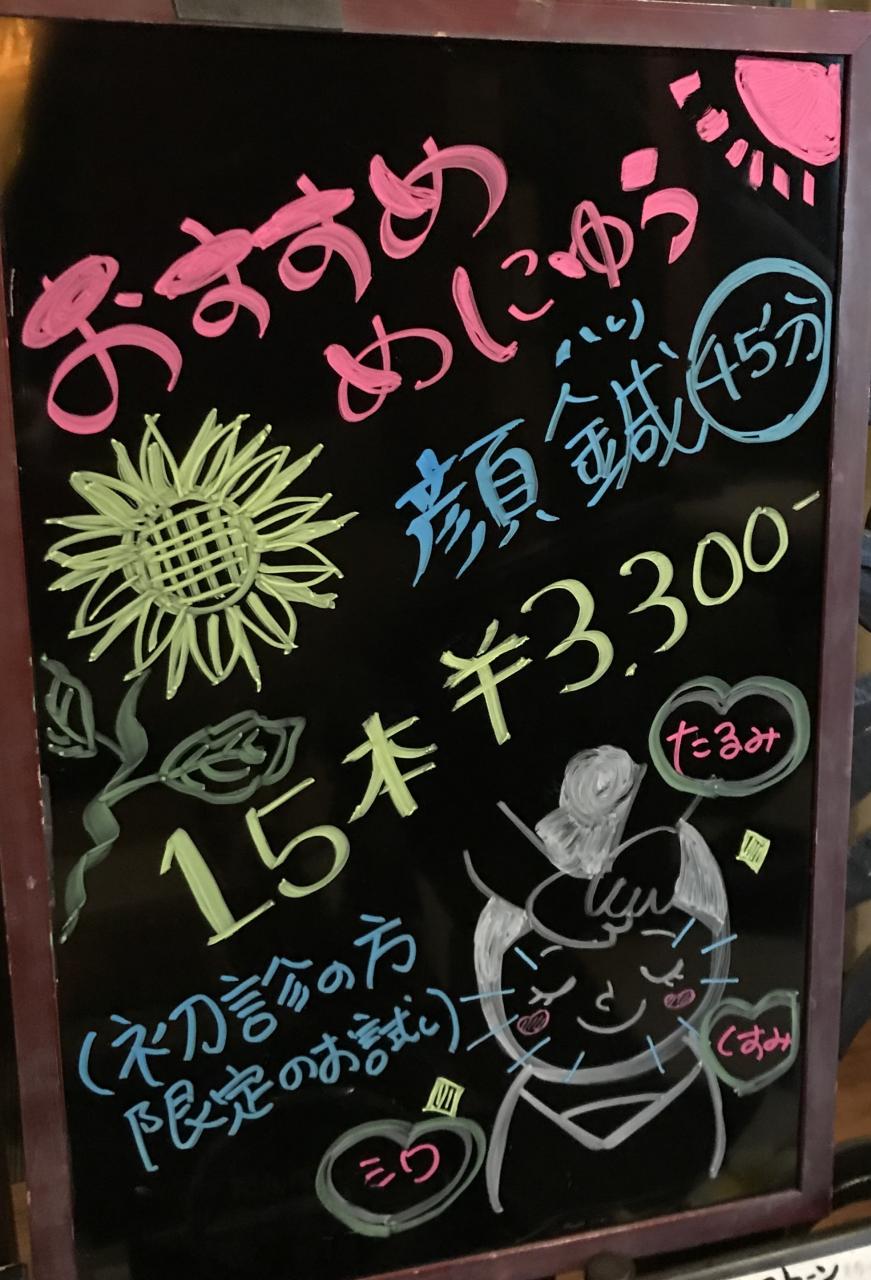 おすすめ
めにゅう
顔鍼 45分
ハリ
15本 ¥3.300-
(初診の方
限定のお試し)
たるみ
くすみ
ミワ